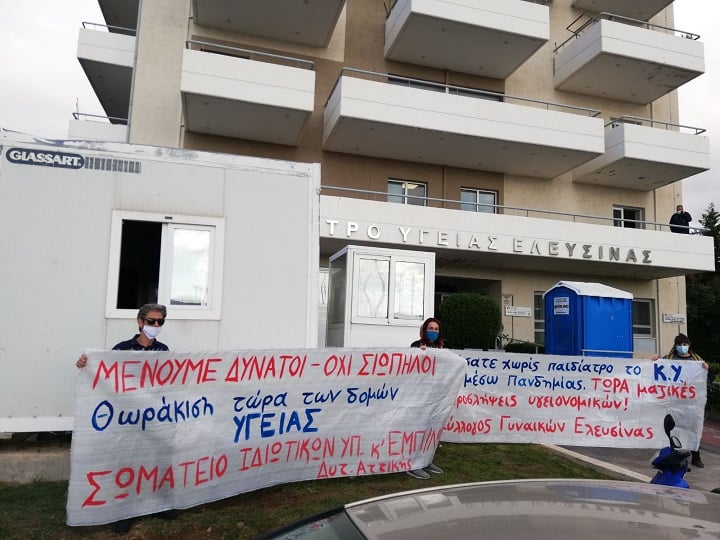 GLASSART
ΤΡΟ ΥΓΕΙΑΣ ΕΛΕΥΣΙΝΑΣ
ΜΕΝΟΥΜΕ ΔΥΝΑΤΟΙ - ΟΧΙ ΣΙΩΠΗΛΟΙ
Θωράκιση τώρα των δομών
ΥΓΕΙΑΣ
ΣΩΜΑΤΕΙΟ ΙΔΙΩΤΙΚΩΝ ΥΠ. κ' ΕΜΠ/Λ
Δυτ. Αττικής
σατε χωρίς παιδίατρο το Κ.Υ
μέσω Πανδημίας. ΤΩΡΑ μαζικές
ροσλήψεις υγειονομικών!
ύλλογος Γυναικών Ελευσίνας